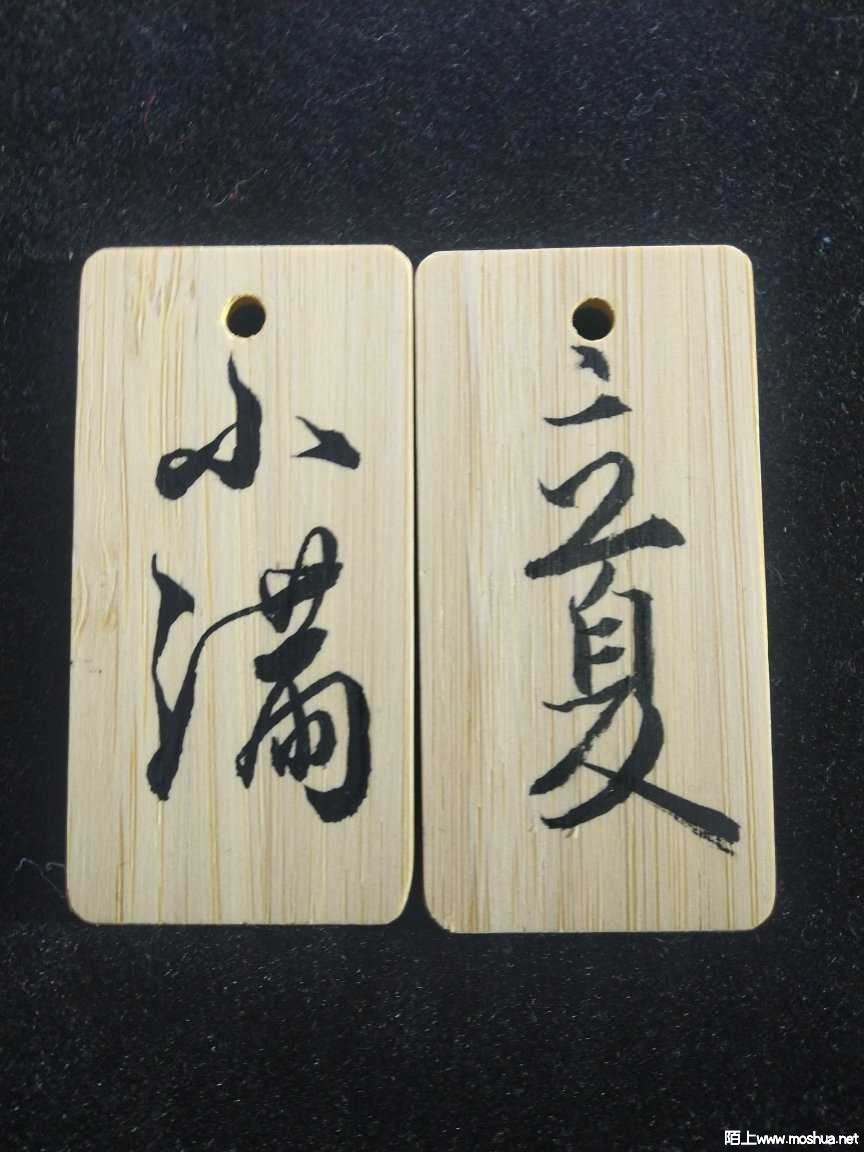 小满
立夏
陌上www.moshua.net